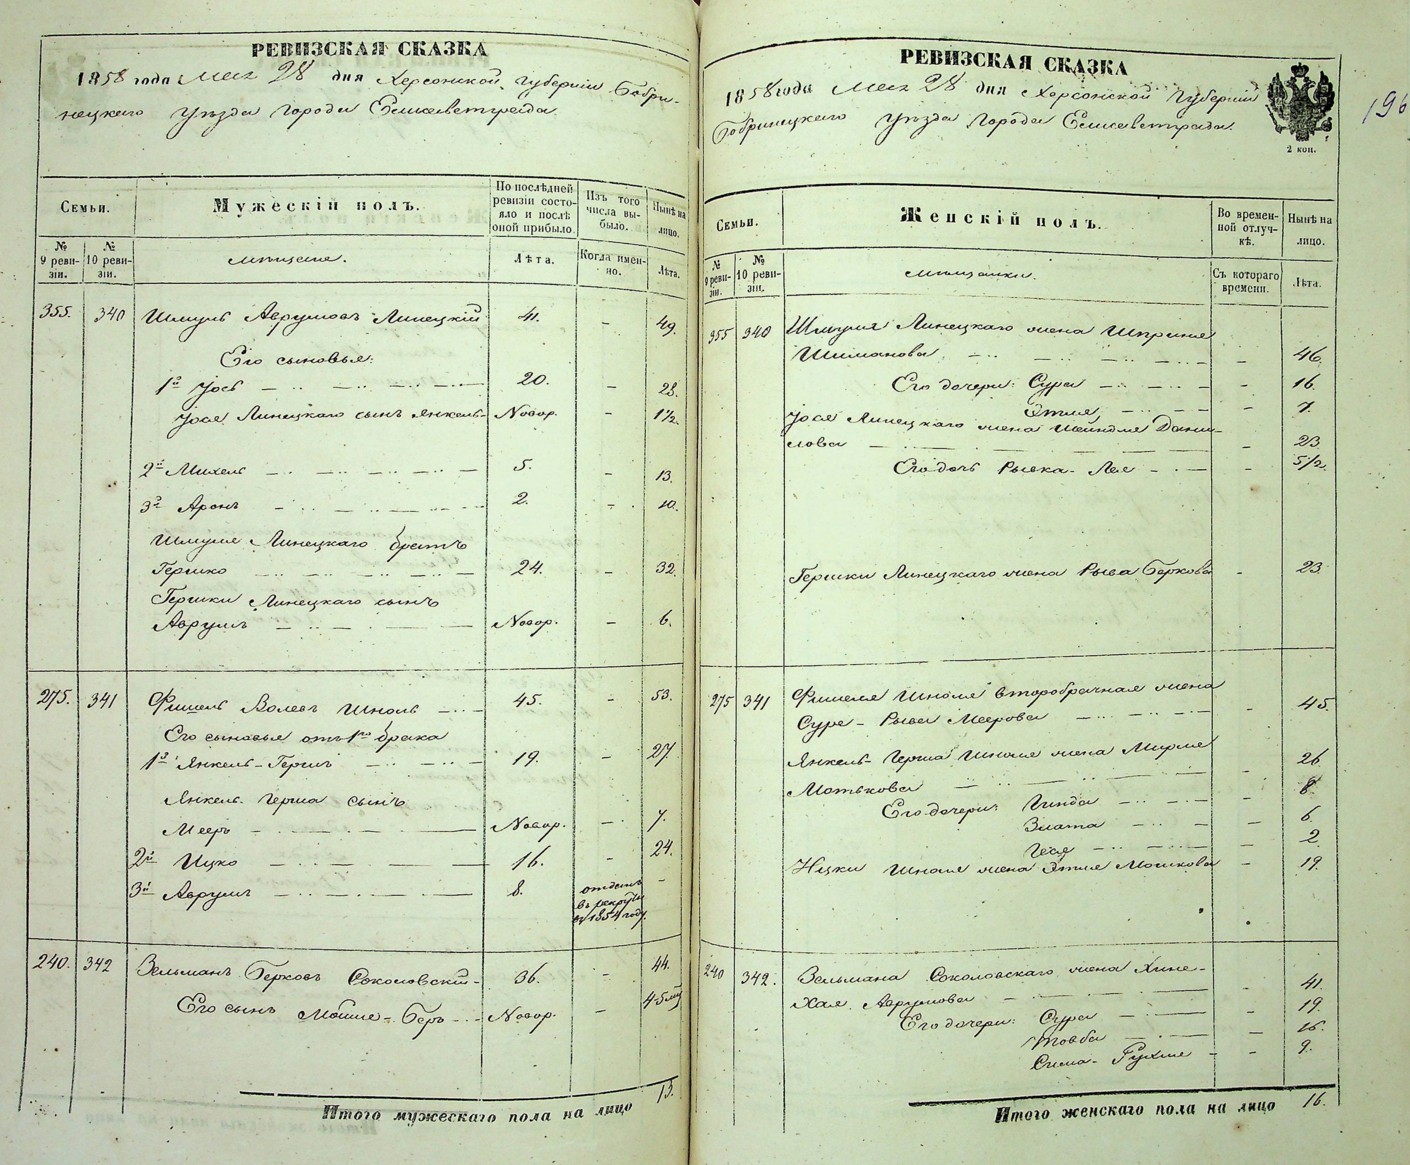 РЕВИЗСКАЯ СКАЗКА
1858 года Мая 28 дня Херсонской Губернии Бобри-
нецкаго Уѣзда Города Елисаветграда
Семьи.
Мужескій полъ.
По послѣдней ревизіи состояло и послѣ оной прибыло.
Изъ того числа выбыло.
Нынѣ на лицо.
№ 9 ревизіи.
№ 10 ревизіи.
мѣщане.
Лѣта.
Когда именно.
Лѣта.
355. 340 Шмуль Аврумовъ Линецкій 41. – 49.
Его сыновья:
1й Іось 20. – 28.
Іося Линецкаго сынъ Янкель Новор. – 1½.
2й Михель 5. – 13.
3й Аронъ 2. – 10.
Шмуля Линецкаго братъ
Гершко 24. – 32.
Гершки Линецкаго сынъ
Аврумъ Новор. – 6.
275. 341 Фишель Волевъ Школь 45. – 53.
Его сыновья отъ 1го брака
1й Янкель-Гершъ 19. – 27.
Янкель Герша сынъ
Мееръ Новор. – 7.
2й Ицко 16. – 24.
3й Аврумъ 8. отданъ въ рекруты въ 1854 году. –
240. 342 Зельманъ Берковъ Соколовскій 36. – 44.
Его сынъ Мойше-Беръ Новор. – 4-5 мц
Итого мужескаго пола на лицо 13.
РЕВИЗСКАЯ СКАЗКА
1858 года Мая 28 дня Херсонской Губерніи
Бобринецкаго Уѣзда Города Елисаветграда.
2 коп.
196
Семьи.
Женскій полъ.
Во временной отлучкѣ.
Нынѣ на лицо.
№ 9 ревизіи.
№ 10 ревизіи.
мѣщанки.
Съ котораго времени.
Лѣта.
355 340 Шмуля Линецкаго жена Шпринця
Шиманова – 46.
Его дочери: Сура – 16.
Этля – 7.
Іося Линецкаго жена Шейндля Дани-
лова – 23
Его дочь Рывка-Лея – 5½.
Гершки Линецкаго жена Рыва Беркова – 23.
275 341 Фишеля Школя второбрачная жена
Сура-Рыва Меерова – 45.
Янкель-Герша Школя жена Мирля
Мотькова – 26
Его дочери: Гинда – 8.
Злата – 6.
Геся – 2.
Ицки Школя жена Этля Мошкова – 19.
240 342. Зельмана Соколовскаго жена Хине-
Хая Аврумова – 41.
Его дочери: Сура – 19.
Товба – 16.
Сима-Рухля – 9.
Итого женскаго пола на лицо 16.